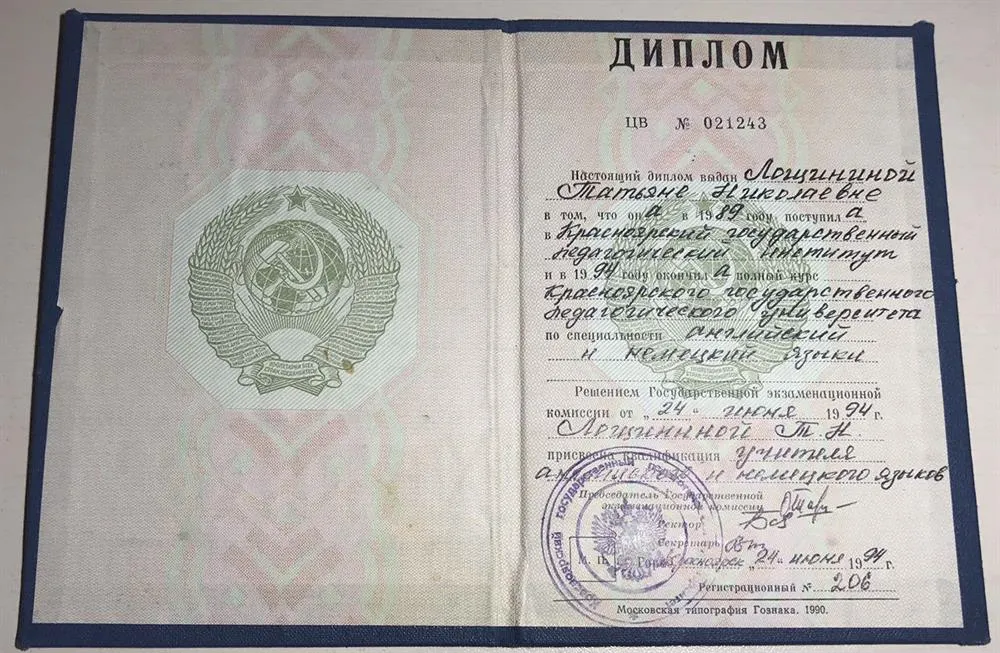 ДИПЛОМ
ЦВ № 021243
Настоящий диплом выдан Лощининой
Татьяне Николаевне
в том, что она в 1989 году поступила
в Красноярский государственный
педагогический институт
и в 1994 году окончила полный курс
Красноярского государственного
педагогического университета
по специальности английский
и немецкий языки
Решением Государственной экзаменационной
комиссии от „24" июня 1994 г.
Лощининой Т. Н.
присвоена квалификация учителя
английского и немецкого языков
Председатель Государственной
экзаменационной комиссии
Ректор
Секретарь
М. П. Город Красноярск „24" июня 1994 г.
Регистрационный № 206
Московская типография Гознака. 1990.